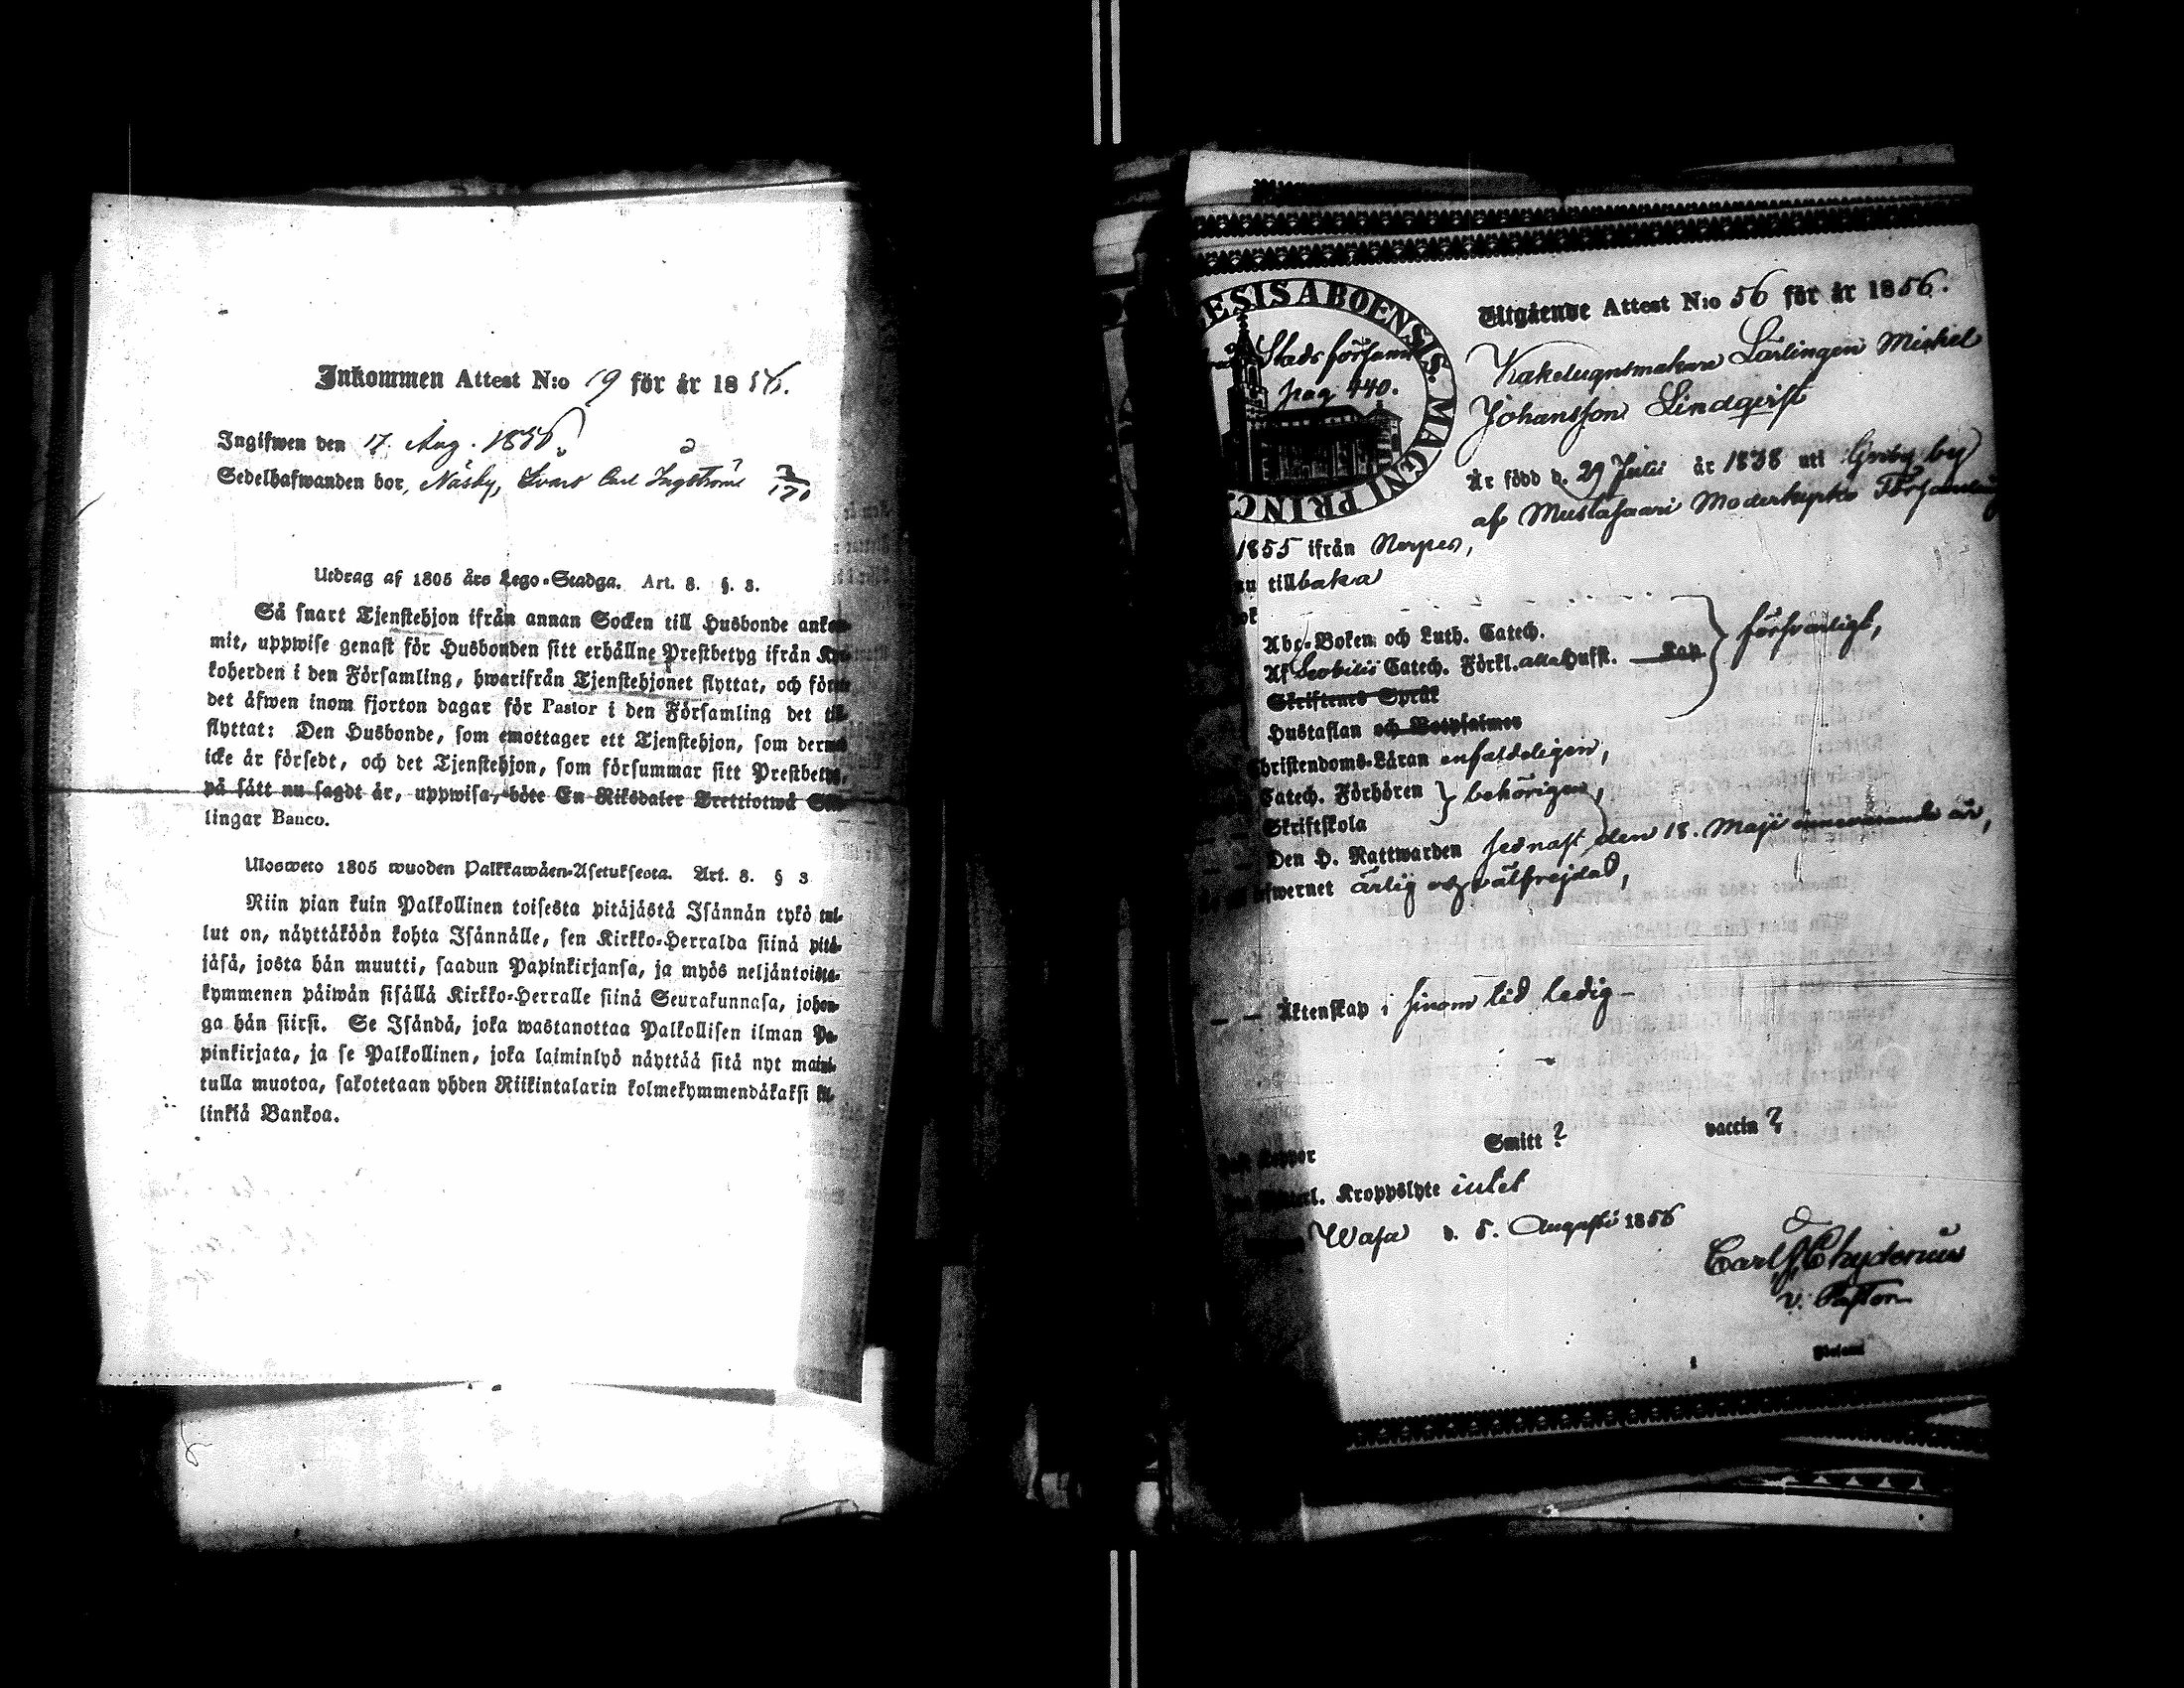 Inkommen Attest N:o 19 för år 1856.
Ingifwen den 17. Aug. 1856.
Sedelhafwanden bor, Näsby, Carl
Utdrag af 1805 års Lego-Stadga. Art. 8. §. 3.
Så snart Tjenstehjon ifrån annan Socken till Husbonde
mit, uppwise genast för Husbonden sitt erhållne Prestbetyg ifrån
koherden i den Församling, hwarifrån Tjenstehjonet flyttat, och
det äfwen inom fjorton dagar för Pastor i den Församling det
flyttat: Den Husbonde, som emottager ett Tjenstehjon, som
icke är försedt, och det Tjenstehjon, som försummar sitt
på sätt nu sagdt är, uppwisa, böte En Riksdaler Trettiotwå
lingar Banco.
Ulosweto 1805 wuoden Palkkawäen-Asetuksesta. Art. 8. § 3
Niin pian kuin Palkollinen toisesta pitäjästä Isännän tykö tul-
lut on, näyttäköön kohta Isännälle, sen Kirkko-Herralda siinä pitä-
jäsä, josta hän muutti, saadun Papinkirjansa, ja myös neljäntoista-
kymmenen päiwän sisällä Kirkko-Herralle siinä Seurakunnasa, johon-
ga hän siirsi. Se Isändä, joka wastanottaa Palkollisen ilman Pa-
pinkirjata, ja se Palkollinen, joka laiminlyö näyttää sitä nyt maini-
tulla muotoa, sakotetaan yhden Riikintalarin kolmekymmendäkaksi
linkiä Bankoa.
ESIS ABOENSIS. MAGNI PRINC
Stads församl
pag 440.
Utgående Attest N:o 56 för år 1856.
Kakelugnsmakare Lärlingen Mickel
Johansson Lindqvist
Är född d. 29 Julii år 1838 uti by
af Mustasaari Moderkyrko Församling
1855 ifrån Nerpes,
tillbaka
Abc-Boken och Luth. Catech.
Af Catech. Förkl. alla Hufst. Kap
försvarligt,
Skriftenes Språk
Hustaflan och Botpsalmer
Christendoms-Läran enfaldeligen,
Catech. Förhören
Skriftskola
behörigen,
Den H. Nattwarden sednast den 18. Maji innevarande år,
ärlig och välfrejdad,
Äktenskap i sinom tid ledig
Smitt ? vaccin ?
Kroppslyte intet
Wasa d. 5. Augusti 1856
Carl Chydenius
v. Pastor